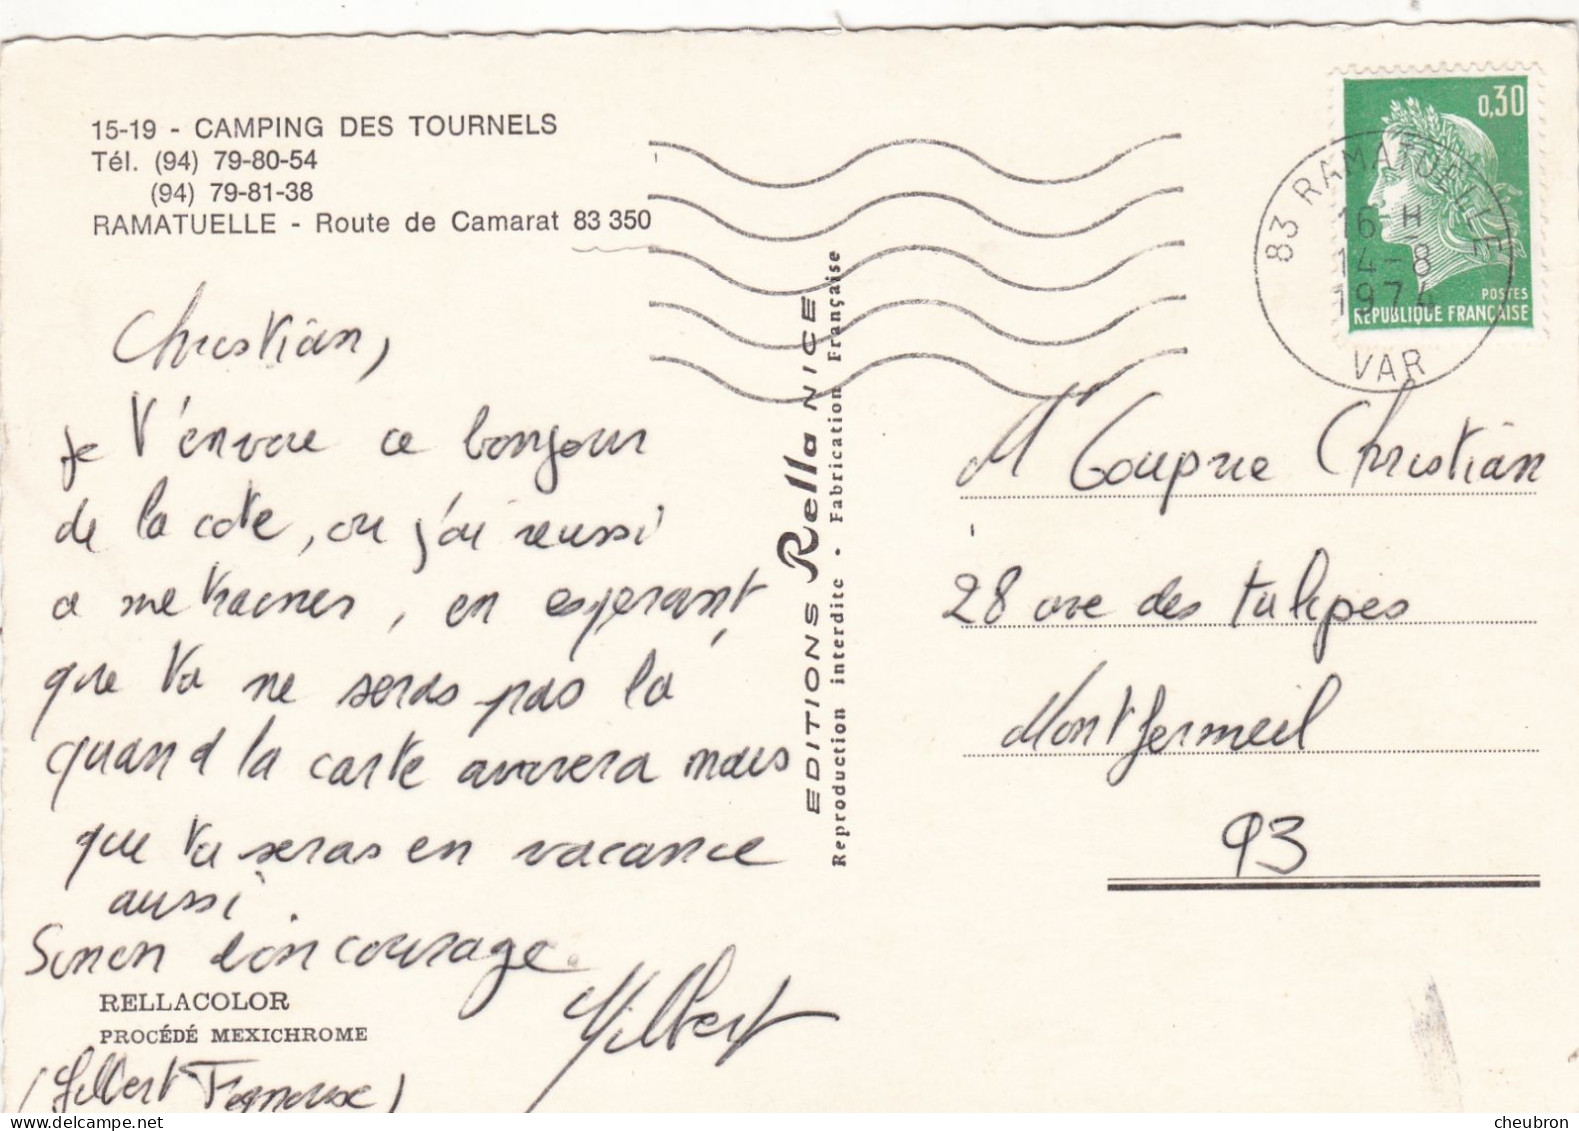 15-19 - CAMPING DES TOURNELS
Tél. (94) 79-80-54
(94) 79-81-38
RAMATUELLE - Route de Camarat 83 350
Christian,
je t'envoie ce bonjour
de la cote, ou j'ai reussi
a me trainer, en esperant
que tu ne seras pas là
quand la carte arrivera mais
que tu seras en vacance
aussi.
Sinon bon courage.
Gilbert
RELLACOLOR
PROCÉDÉ MEXICHROME
(Gilbert
EDITIONS Rella NICE
Reproduction interdite • Fabrication Française
0,30
POSTES
REPUBLIQUE FRANÇAISE
83 RAMATUELLE
16 H
14-8
1974
VAR
Mr Gouprie Christian
28 ave des tulipes
Montfermeil
93
cheubron.com